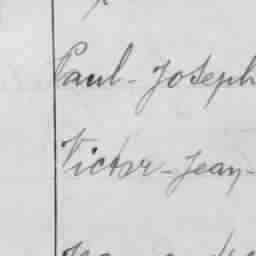 Paul-Joseph
Victor-Jean-